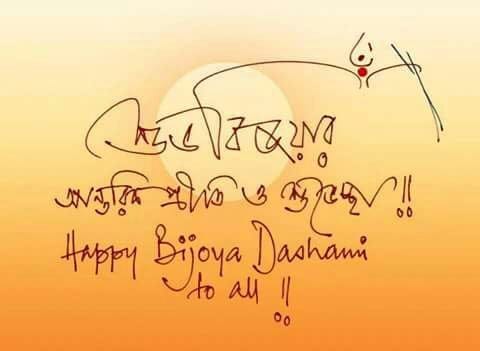 শুভ বিজয়ার
আন্তরিক প্রীতি ও শুভেচ্ছা !!
Happy Bijoya Dashami
to all !!